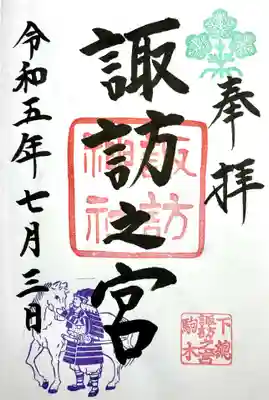 奉拝
諏訪之宮
諏訪
神社
令和五年七月三日
下總
諏訪之宮
駒木